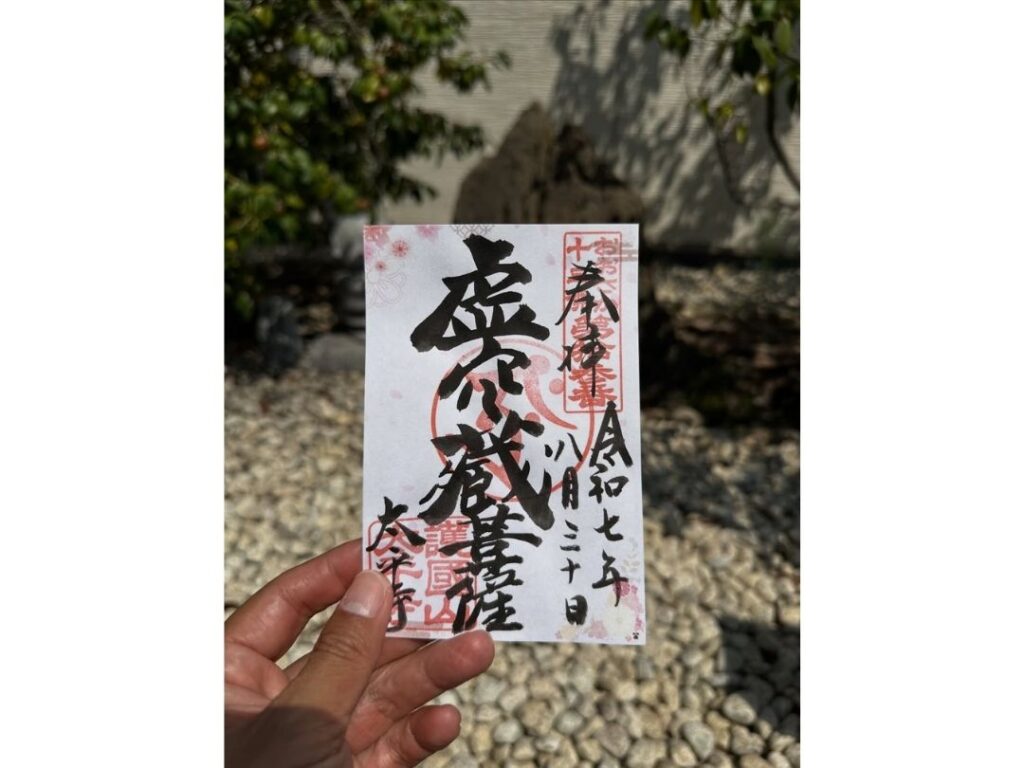 奉拝
令和七年
八月三十日
虚空蔵菩薩
太平寺
護國山